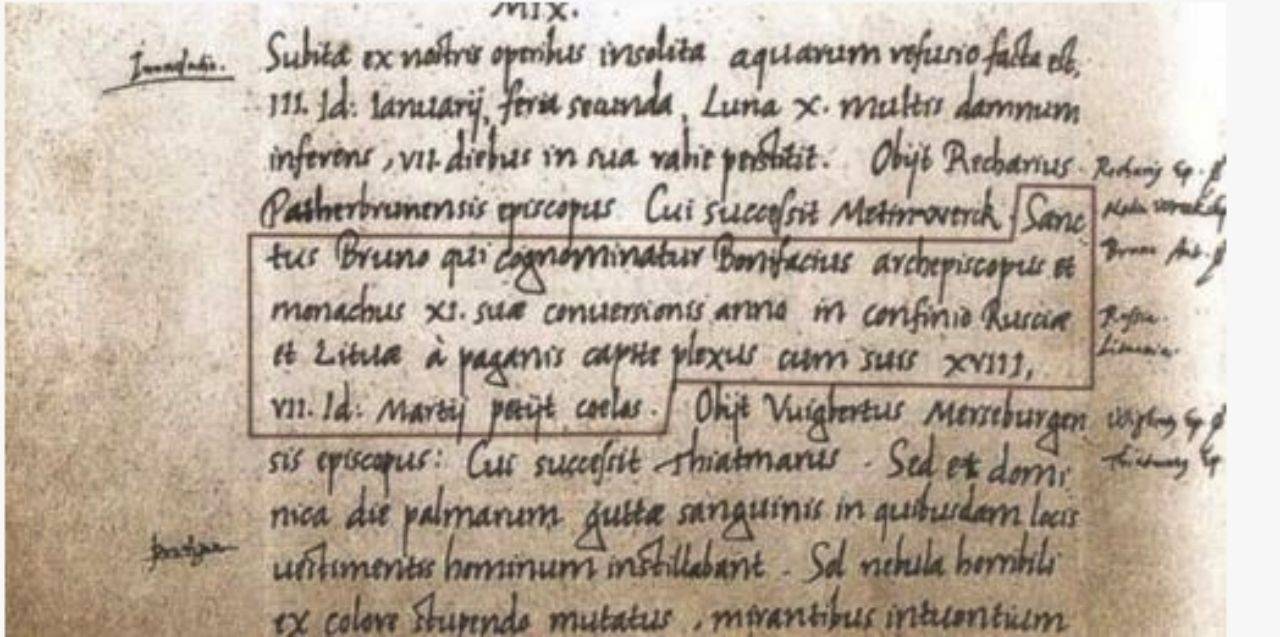 MIX.
Subita ex nostris operibus insolita aquarum refusio facta est,
III. Id: Ianuarij, feria secunda, Luna X. multis damnum
inferens, VII. diebus in sua rabie perstitit. Obijt Recharius
Patherbrunensis episcopus Cui successit Metinwerck. Sanc
tus Bruno qui cognominatur Bonifacius archepiscopus et
monachus XI. suæ conversionis anno in confinio Rusciæ
et Lituæ à paganis capite plexus cum suis XVIII,
VII. Id: Martij petijt coelos. Obijt Vuigbertus Merseburgen
sis episcopus: Cui successit Thiatmarus. Sed et domi
nica die palmarum guttæ sanguinis in quibusdam locis
vestimentis hominum instillabant. Sol nebula horribili
ex colore stupendo mutatus, mirantibus intuentium